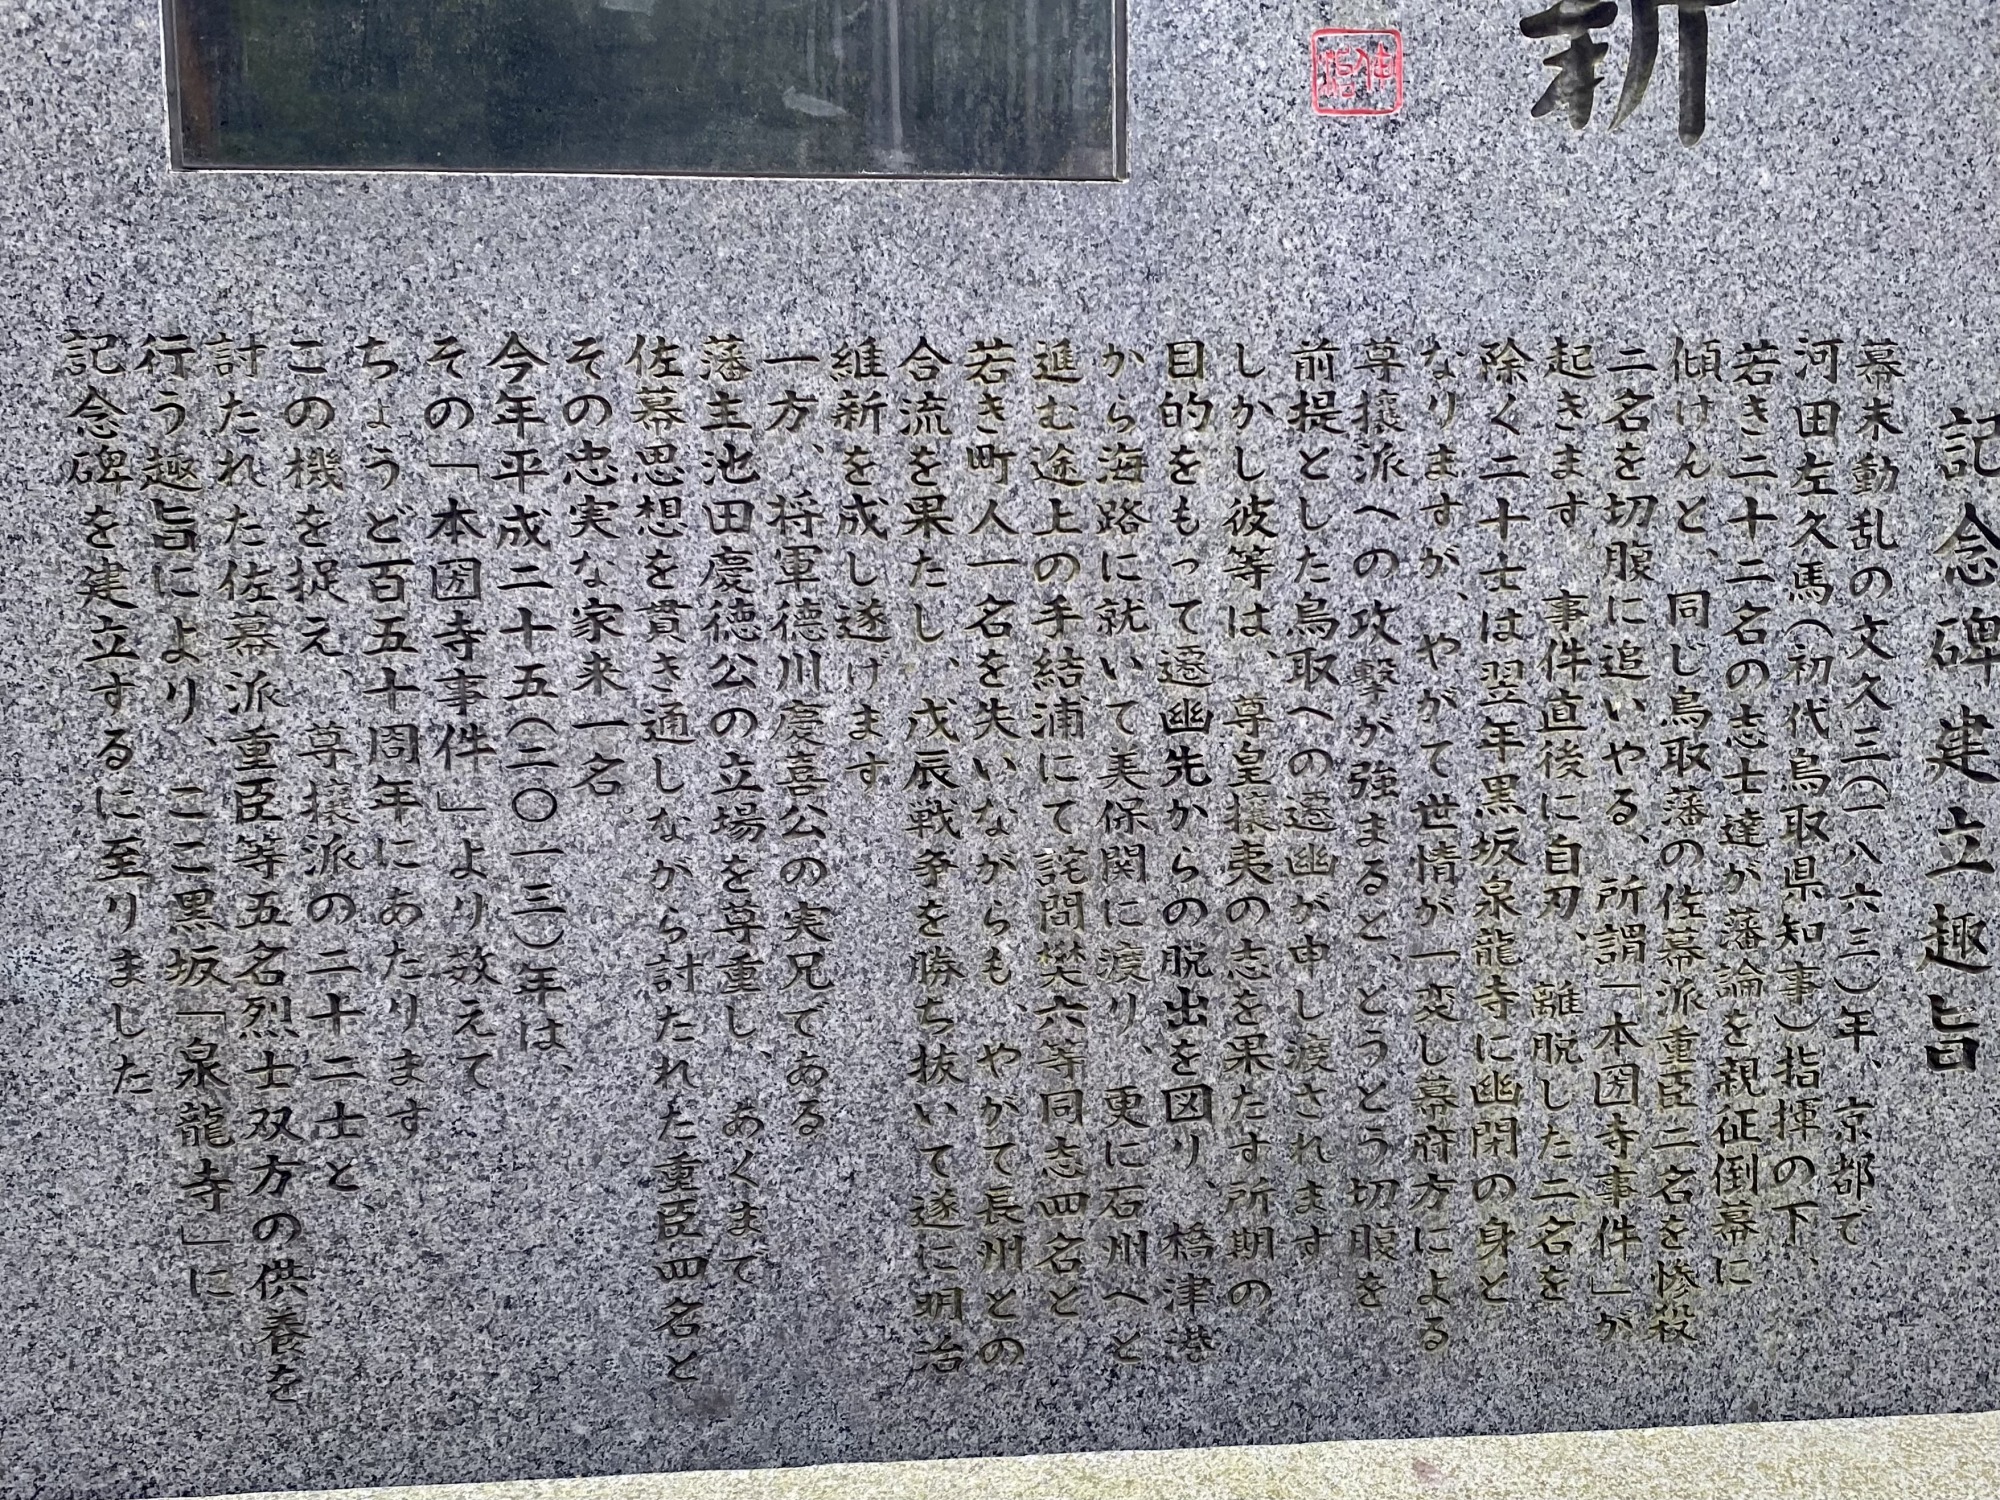 新
記念碑建立趣旨
幕末動乱の文久三(一八六三)年、京都で
河田左久馬(初代鳥取県知事)指揮の下、
若き二十二名の志士達が藩論を親征倒幕に
傾けんと、同じ鳥取藩の佐幕派重臣二名を惨殺
二名を切腹に追いやる、所謂「本圀寺事件」が
起きます 事件直後に自刃、離脱した二名を
除く二十士は翌年黒坂泉龍寺に幽閉の身と
なりますが、やがて世情が一変し幕府方による
尊攘派への攻撃が強まると、とうとう切腹を
前提とした鳥取への遷幽が申し渡されます
しかし彼等は、尊皇攘夷の志を果たす所期の
目的をもって遷幽先からの脱出を図り、橋津港
から海路に就いて美保関に渡り、更に石州へと
進む途上の手結浦にて詫間樊六等同志四名と
若き町人一名を失いながらも、やがて長州との
合流を果たし、戊辰戦争を勝ち抜いて遂に明治
維新を成し遂げます
一方、将軍徳川慶喜公の実兄である
藩主池田慶徳公の立場を尊重し、あくまで
佐幕思想を貫き通しながら討たれた重臣四名と
その忠実な家来一名。
今年平成二十五(二〇一三)年は、
その「本圀寺事件」より数えて
ちょうど百五十周年にあたります
この機を捉え、尊攘派の二十二士と、
討たれた佐幕派重臣等五名烈士双方の供養を
行う趣旨により、ここ黒坂「泉龍寺」に
記念碑を建立するに至りました